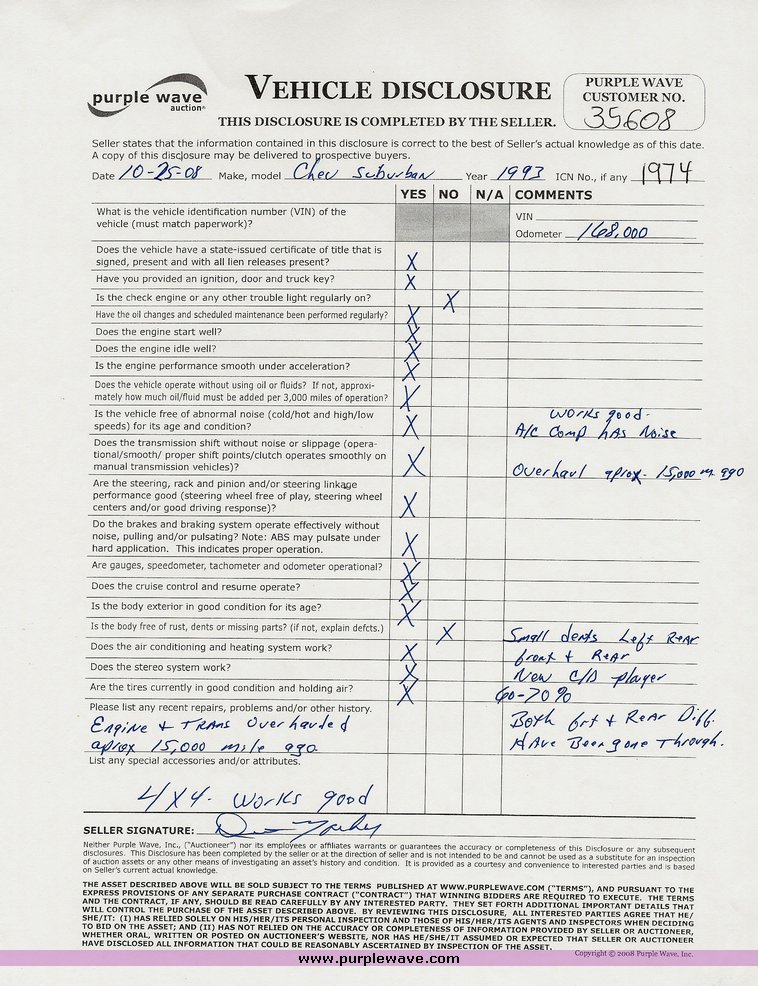 purple wave
auction®
VEHICLE DISCLOSURE
THIS DISCLOSURE IS COMPLETED BY THE SELLER.
PURPLE WAVE
CUSTOMER NO.
35608
Seller states that the information contained in this disclosure is correct to the best of Seller's actual knowledge as of this date.
A copy of this disclosure may be delivered to prospective buyers.
Date 10-25-08 Make, model Chev Suburban Year 1993 ICN No., if any 1974
YES NO N/A COMMENTS
What is the vehicle identification number (VIN) of the
vehicle (must match paperwork)?
VIN
Odometer 168,000
Does the vehicle have a state-issued certificate of title that is
signed, present and with all lien releases present? X
Have you provided an ignition, door and truck key? X
Is the check engine or any other trouble light regularly on? X
Have the oil changes and scheduled maintenance been performed regularly? X
Does the engine start well? X
Does the engine idle well? X
Is the engine performance smooth under acceleration? X
Does the vehicle operate without using oil or fluids? If not, approxi-
mately how much oil/fluid must be added per 3,000 miles of operation? X
Is the vehicle free of abnormal noise (cold/hot and high/low
speeds) for its age and condition? X
works good-
A/C Comp has Noise
Does the transmission shift without noise or slippage (opera-
tional/smooth/ proper shift points/clutch operates smoothly on
manual transmission vehicles)? X
Overhaul aprox- 15,000 m. ago
Are the steering, rack and pinion and/or steering linkage
performance good (steering wheel free of play, steering wheel
centers and/or good driving response)? X
Do the brakes and braking system operate effectively without
noise, pulling and/or pulsating? Note: ABS may pulsate under
hard application. This indicates proper operation. X
Are gauges, speedometer, tachometer and odometer operational? X
Does the cruise control and resume operate? X
Is the body exterior in good condition for its age? X
Is the body free of rust, dents or missing parts? (if not, explain defcts.) X
Small dents Left Rear
front + Rear
Does the air conditioning and heating system work? X
Does the stereo system work? X New C/D player
Are the tires currently in good condition and holding air? X 60-70%
Please list any recent repairs, problems and/or other history.
Engine + Trans Overhauled
aprox 15,000 mile ago
Both frt + Rear Diff.
Have Been gone Through.
List any special accessories and/or attributes.
4X4- works good
SELLER SIGNATURE:
Neither Purple Wave, Inc., ("Auctioneer") nor its employees or affiliates warrants or guarantees the accuracy or completeness of this Disclosure or any subsequent
disclosures. This Disclosure has been completed by the seller or at the direction of seller and is not intended to be and cannot be used as a substitute for an inspection
of auction assets or any other means of investigating an asset's history and condition. It is provided as a courtesy and convenience to interested parties and is based
on Seller's current actual knowledge.
THE ASSET DESCRIBED ABOVE WILL BE SOLD SUBJECT TO THE TERMS PUBLISHED AT WWW.PURPLEWAVE.COM ("TERMS"), AND PURSUANT TO THE
EXPRESS PROVISIONS OF ANY SEPARATE PURCHASE CONTRACT ("CONTRACT") THAT WINNING BIDDERS ARE REQUIRED TO EXECUTE. THE TERMS
AND THE CONTRACT, IF ANY, SHOULD BE READ CAREFULLY BY ANY INTERESTED PARTY. THEY SET FORTH ADDITIONAL IMPORTANT DETAILS THAT
WILL CONTROL THE PURCHASE OF THE ASSET DESCRIBED ABOVE. BY REVIEWING THIS DISCLOSURE, ALL INTERESTED PARTIES AGREE THAT HE/
SHE/IT: (I) HAS RELIED SOLELY ON HIS/HER/ITS PERSONAL INSPECTION AND THOSE OF HIS/HER/ITS AGENTS AND INSPECTORS WHEN DECIDING
TO BID ON THE ASSET; AND (II) HAS NOT RELIED ON THE ACCURACY OR COMPLETENESS OF INFORMATION PROVIDED BY SELLER OR AUCTIONEER,
WHETHER ORAL, WRITTEN OR POSTED ON AUCTIONEER'S WEBSITE, NOR HAS HE/SHE/IT ASSUMED OR EXPECTED THAT SELLER OR AUCTIONEER
HAVE DISCLOSED ALL INFORMATION THAT COULD BE REASONABLY ASCERTAINED BY INSPECTION OF THE ASSET.
Copyright © 2008 Purple Wave, Inc.
www.purplewave.com